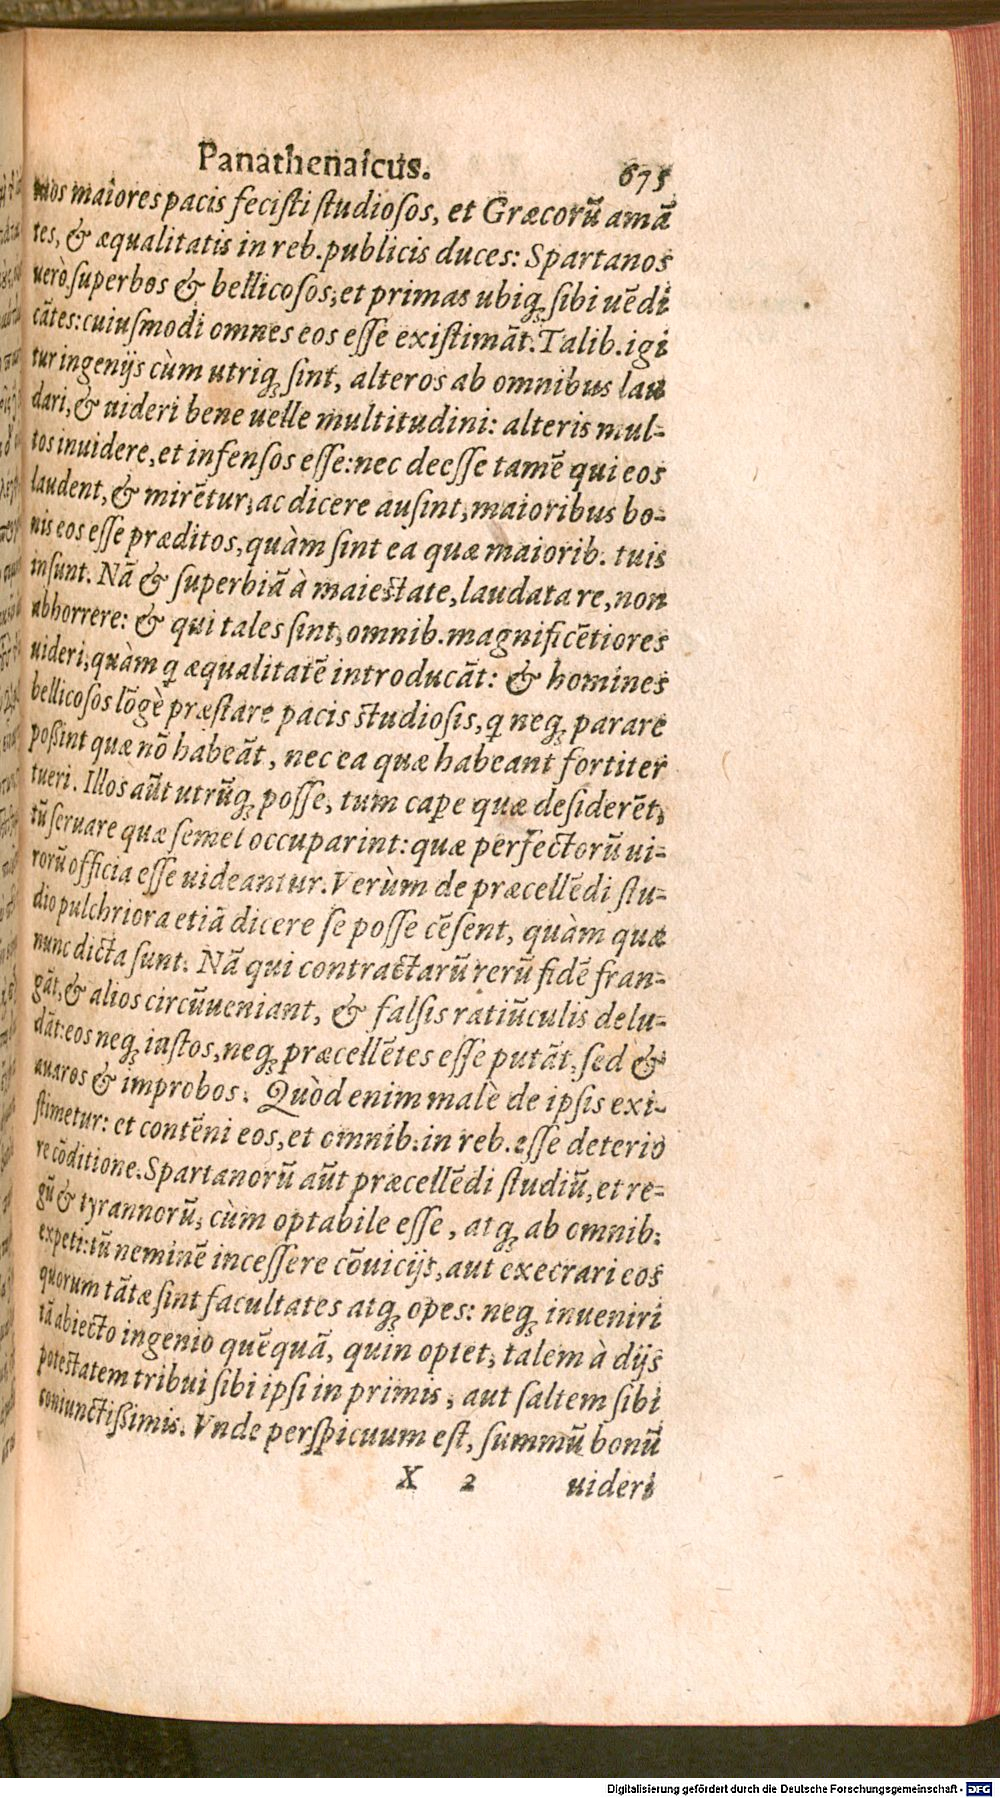 Panathenaicus. 675
tuos maiores pacis fecisti studiosos, et Græcorū amā
tes, & æqualitatis in reb. publicis duces: Spartanos
uerò superbos & bellicosos, et primas ubiq; sibi uēdi
cātes: cuiusmodi omnes eos esse existimāt. Talib. igi
tur ingenijs cùm utriq; sint, alteros ab omnibus lau
dari, & uideri bene uelle multitudini: alteris mul-
tos inuidere, et infensos esse: nec deesse tamē qui eos
laudent, & mirētur, ac dicere ausint, maioribus bo-
nis eos esse præditos, quàm sint ea quæ maiorib. tuis
insunt. Nā & superbiā à maiestate, laudata re, non
abhorrere: & qui tales sint, omnib. magnificētiores
uideri, quàm q æqualitatē introducāt: & homines
bellicosos lōgè præstare pacis studiosis, q neq; parare
possint quæ nō habeāt, nec ea quæ habeant fortiter
tueri. Illos aūt utrūq; posse, tum cape quæ desiderēt,
tū seruare quæ semel occuparint: quæ perfectorū ui-
rorū officia esse uideantur. Verùm de præcellēdi stu-
dio pulchriora etiā dicere se posse cēsent, quàm quæ
nunc dicta sunt. Nā qui contractarū rerū fidē fran-
gāt, & alios circūueniant, & falsis ratiūculis delu-
dāt: eos neq; iustos, neq; præcellētes esse putāt, sed &
auaros & improbos. Quòd enim malè de ipsis exi-
stimetur: et contēni eos, et omnib. in reb. esse deterio
re cōditione. Spartanorū aūt præcellēdi studiū, et re-
gū & tyrannorū, cùm optabile esse, atq; ab omnib.
expeti: tū neminē incessere cōuicijs, aut execrari eos
quorum tātæ sint facultates atq; opes: neq; inueniri
tā abiecto ingenio quēquā, quin optet, talem à dijs
potestatem tribui sibi ipsi in primis, aut saltem sibi
coniunctissimis. Vnde perspicuum est, summū bonū
X 2 uideri
Digitalisierung gefördert durch die Deutsche Forschungsgemeinschaft - DFG